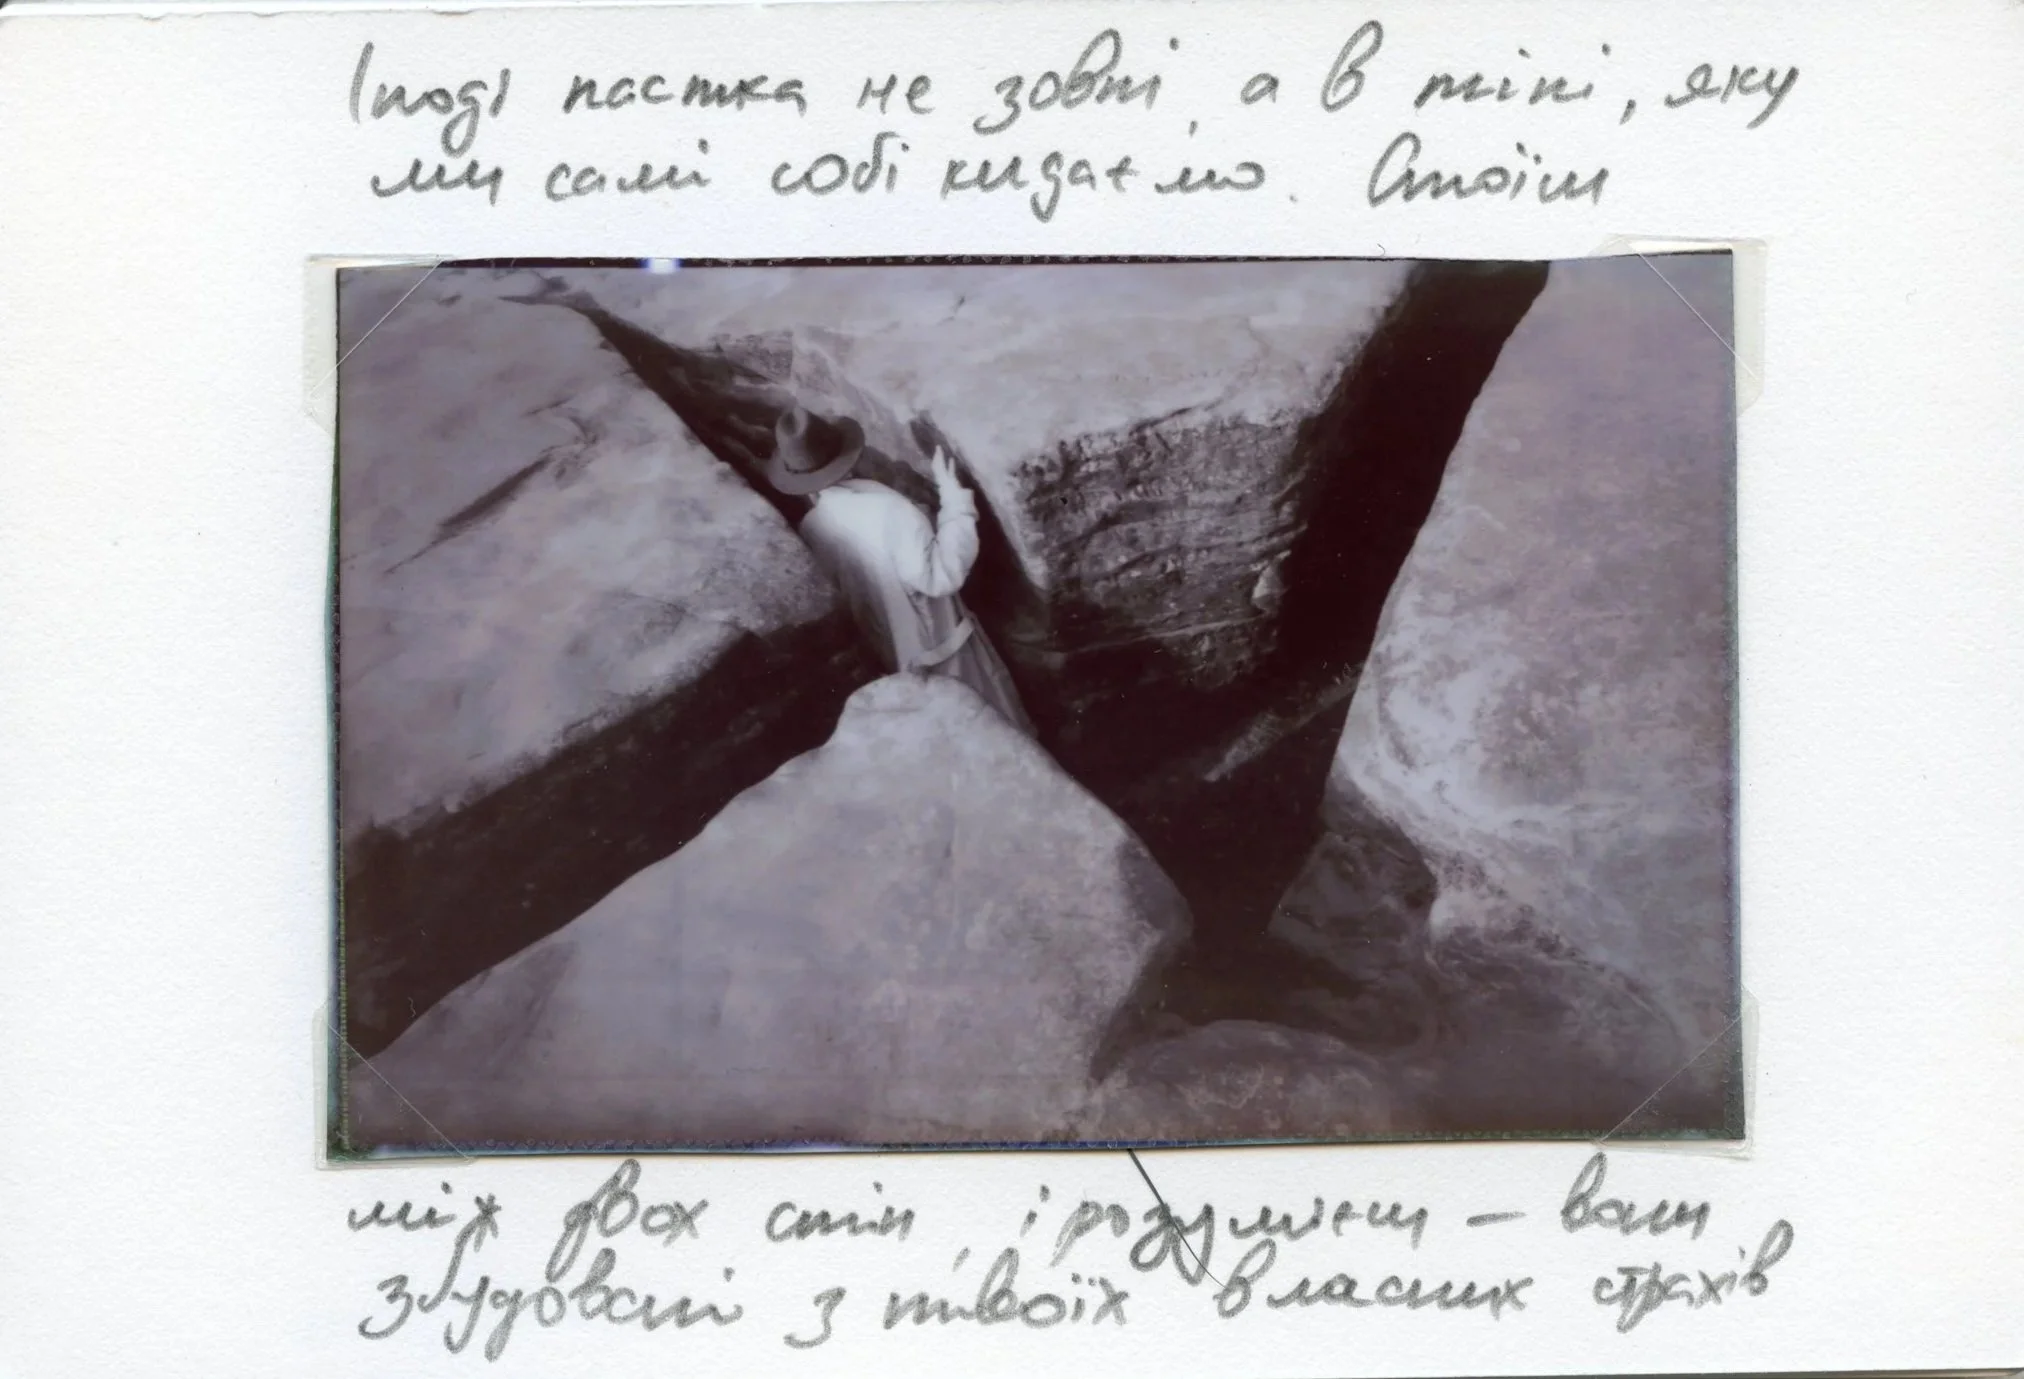 Іноді пастка не зовні, а в тіні, яку
ми самі собі кидаємо. Стоїш
між двох стін, і розумієш – вони
збудовані з твоїх власних страхів